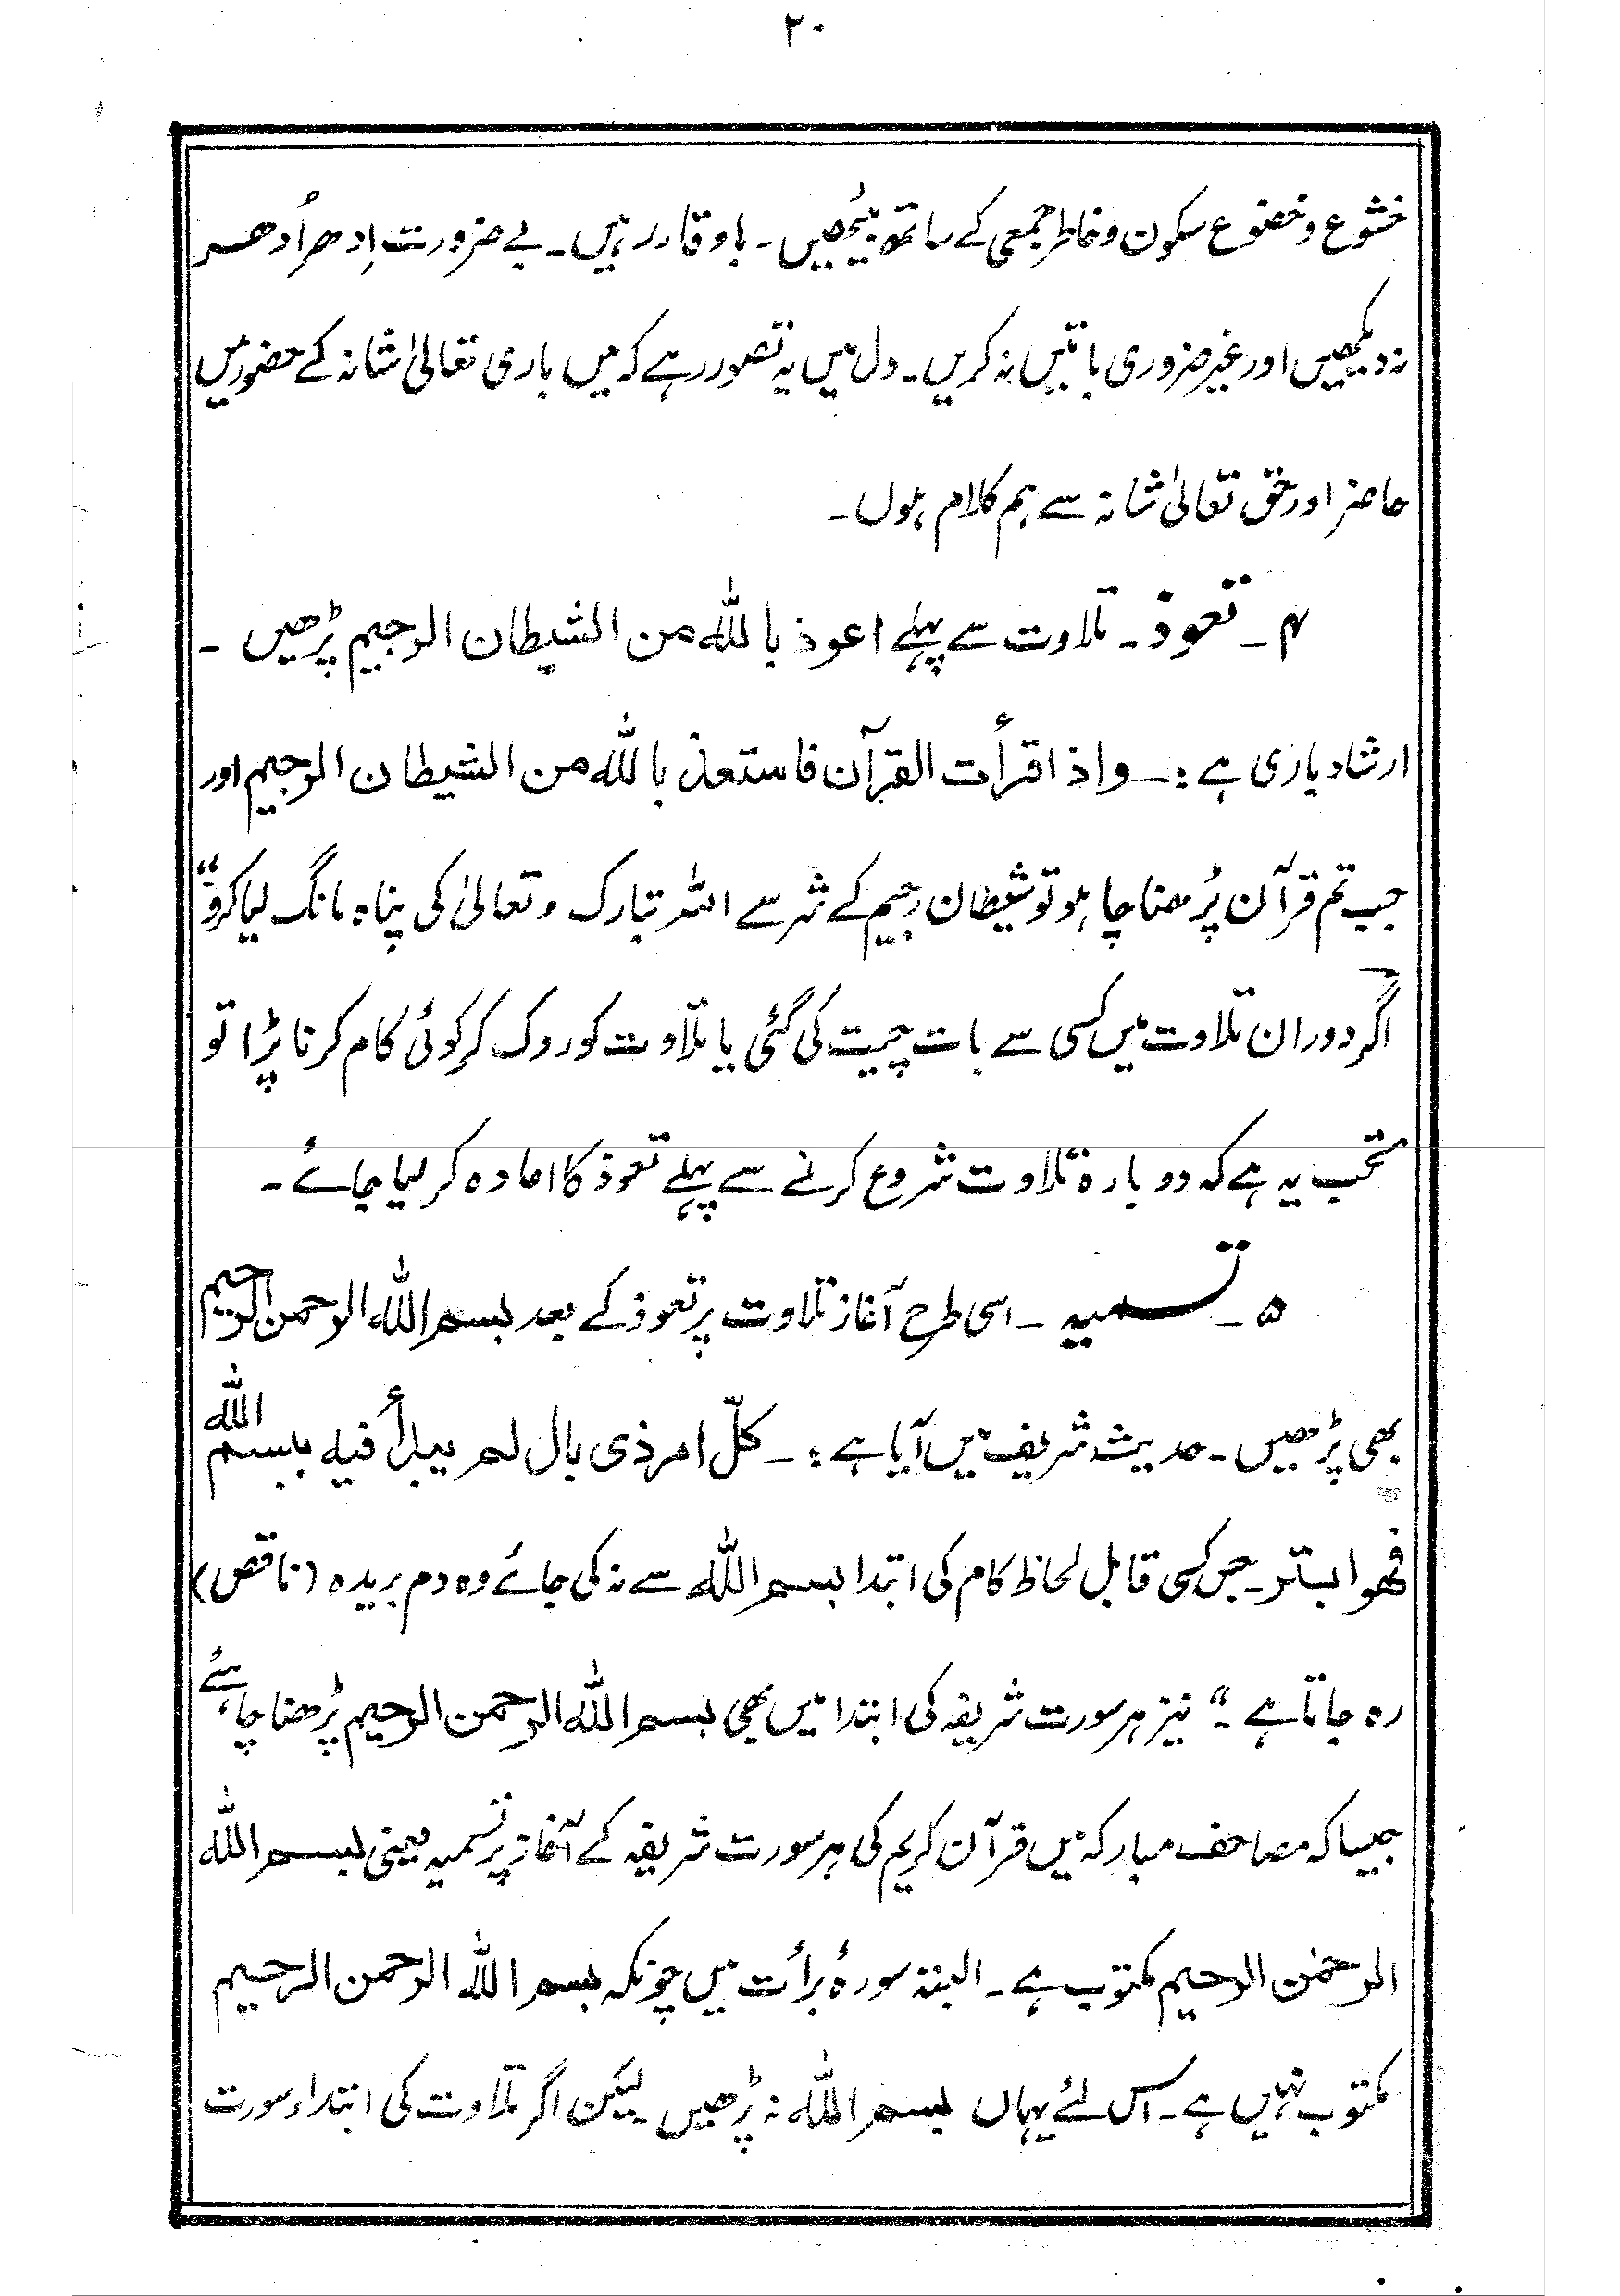 ۲۰
خشوع و خضوع سکون و خاطر جمعی کے ساتھ بیٹھیں۔ باوقار رہیں۔ بے ضرورت اِدھر اُدھر
نہ دیکھیں اور غیر ضروری باتیں نہ کریں۔ دل میں یہ تصور رہے کہ میں باری تعالیٰ شانہ کے حضور میں
حاضر اور حق تعالیٰ شانہ سے ہم کلام ہوں۔
۴۔ تعوذ۔ تلاوت سے پہلے اعوذ باللہ من الشیطان الرجیم پڑھیں۔
ارشاد باری ہے:۔ واذا قرأت القرآن فاستعذ باللہ من الشیطان الرجیم اور
جب تم قرآن پڑھنا چاہو تو شیطان رجیم کے شر سے اللہ تبارک و تعالیٰ کی پناہ مانگ لیا کرو۔“
اگر دوران تلاوت میں کسی سے بات چیت کی گئی یا تلاوت کو روک کر کوئی کام کرنا پڑا تو
مستحب یہ ہے کہ دوبارہ تلاوت شروع کرنے سے پہلے تعوذ کا اعادہ کر لیا جائے۔
۵۔ تسمیہ۔ اسی طرح آغاز تلاوت پر تعوذ کے بعد بسم اللہ الرحمن الرحیم
بھی پڑھیں۔ حدیث شریف میں آیا ہے:۔ کلّ امر ذی بال لم یبدأ فیہ ببسم اللہ
فھو ابتر۔ جس کسی قابل لحاظ کام کی ابتدا بسم اللہ سے نہ کی جائے وہ دم بریدہ (ناقص)
رہ جاتا ہے۔“ نیز ہر سورت شریفہ کی ابتدا میں بھی بسم اللہ الرحمن الرحیم پڑھنا چاہئے
جیسا کہ مصاحف مبارکہ میں قرآن کریم کی ہر سورت شریفہ کے آغاز پر تسمیہ یعنی بسم اللہ
الرحمٰن الرحیم مکتوب ہے۔ البتہ سورۂ برأت میں چونکہ بسم اللہ الرحمن الرحیم
مکتوب نہیں ہے۔ اس لئے یہاں بسم اللہ نہ پڑھیں۔ لیکن اگر تلاوت کی ابتداء سورت